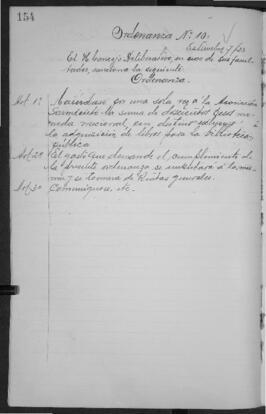 154
Ordenanza Nº 10.
Setiembre 7/923
El H. Concejo Deliberativo, en uso de sus facul-
tades, sanciona la siguiente
Ordenanza.
Art. 1º Acuérdase por una sola vez a la Asociación
Sarmiento la suma de doscientos pesos mo-
neda nacional, con destino
a la adquisición de libros para la biblioteca
pública
Art. 2º El gasto que demande el cumplimiento de
la presente ordenanza se imputará a la mis-
ma y se tomará de Rentas generales.
Art. 3º Comuníquese, etc.